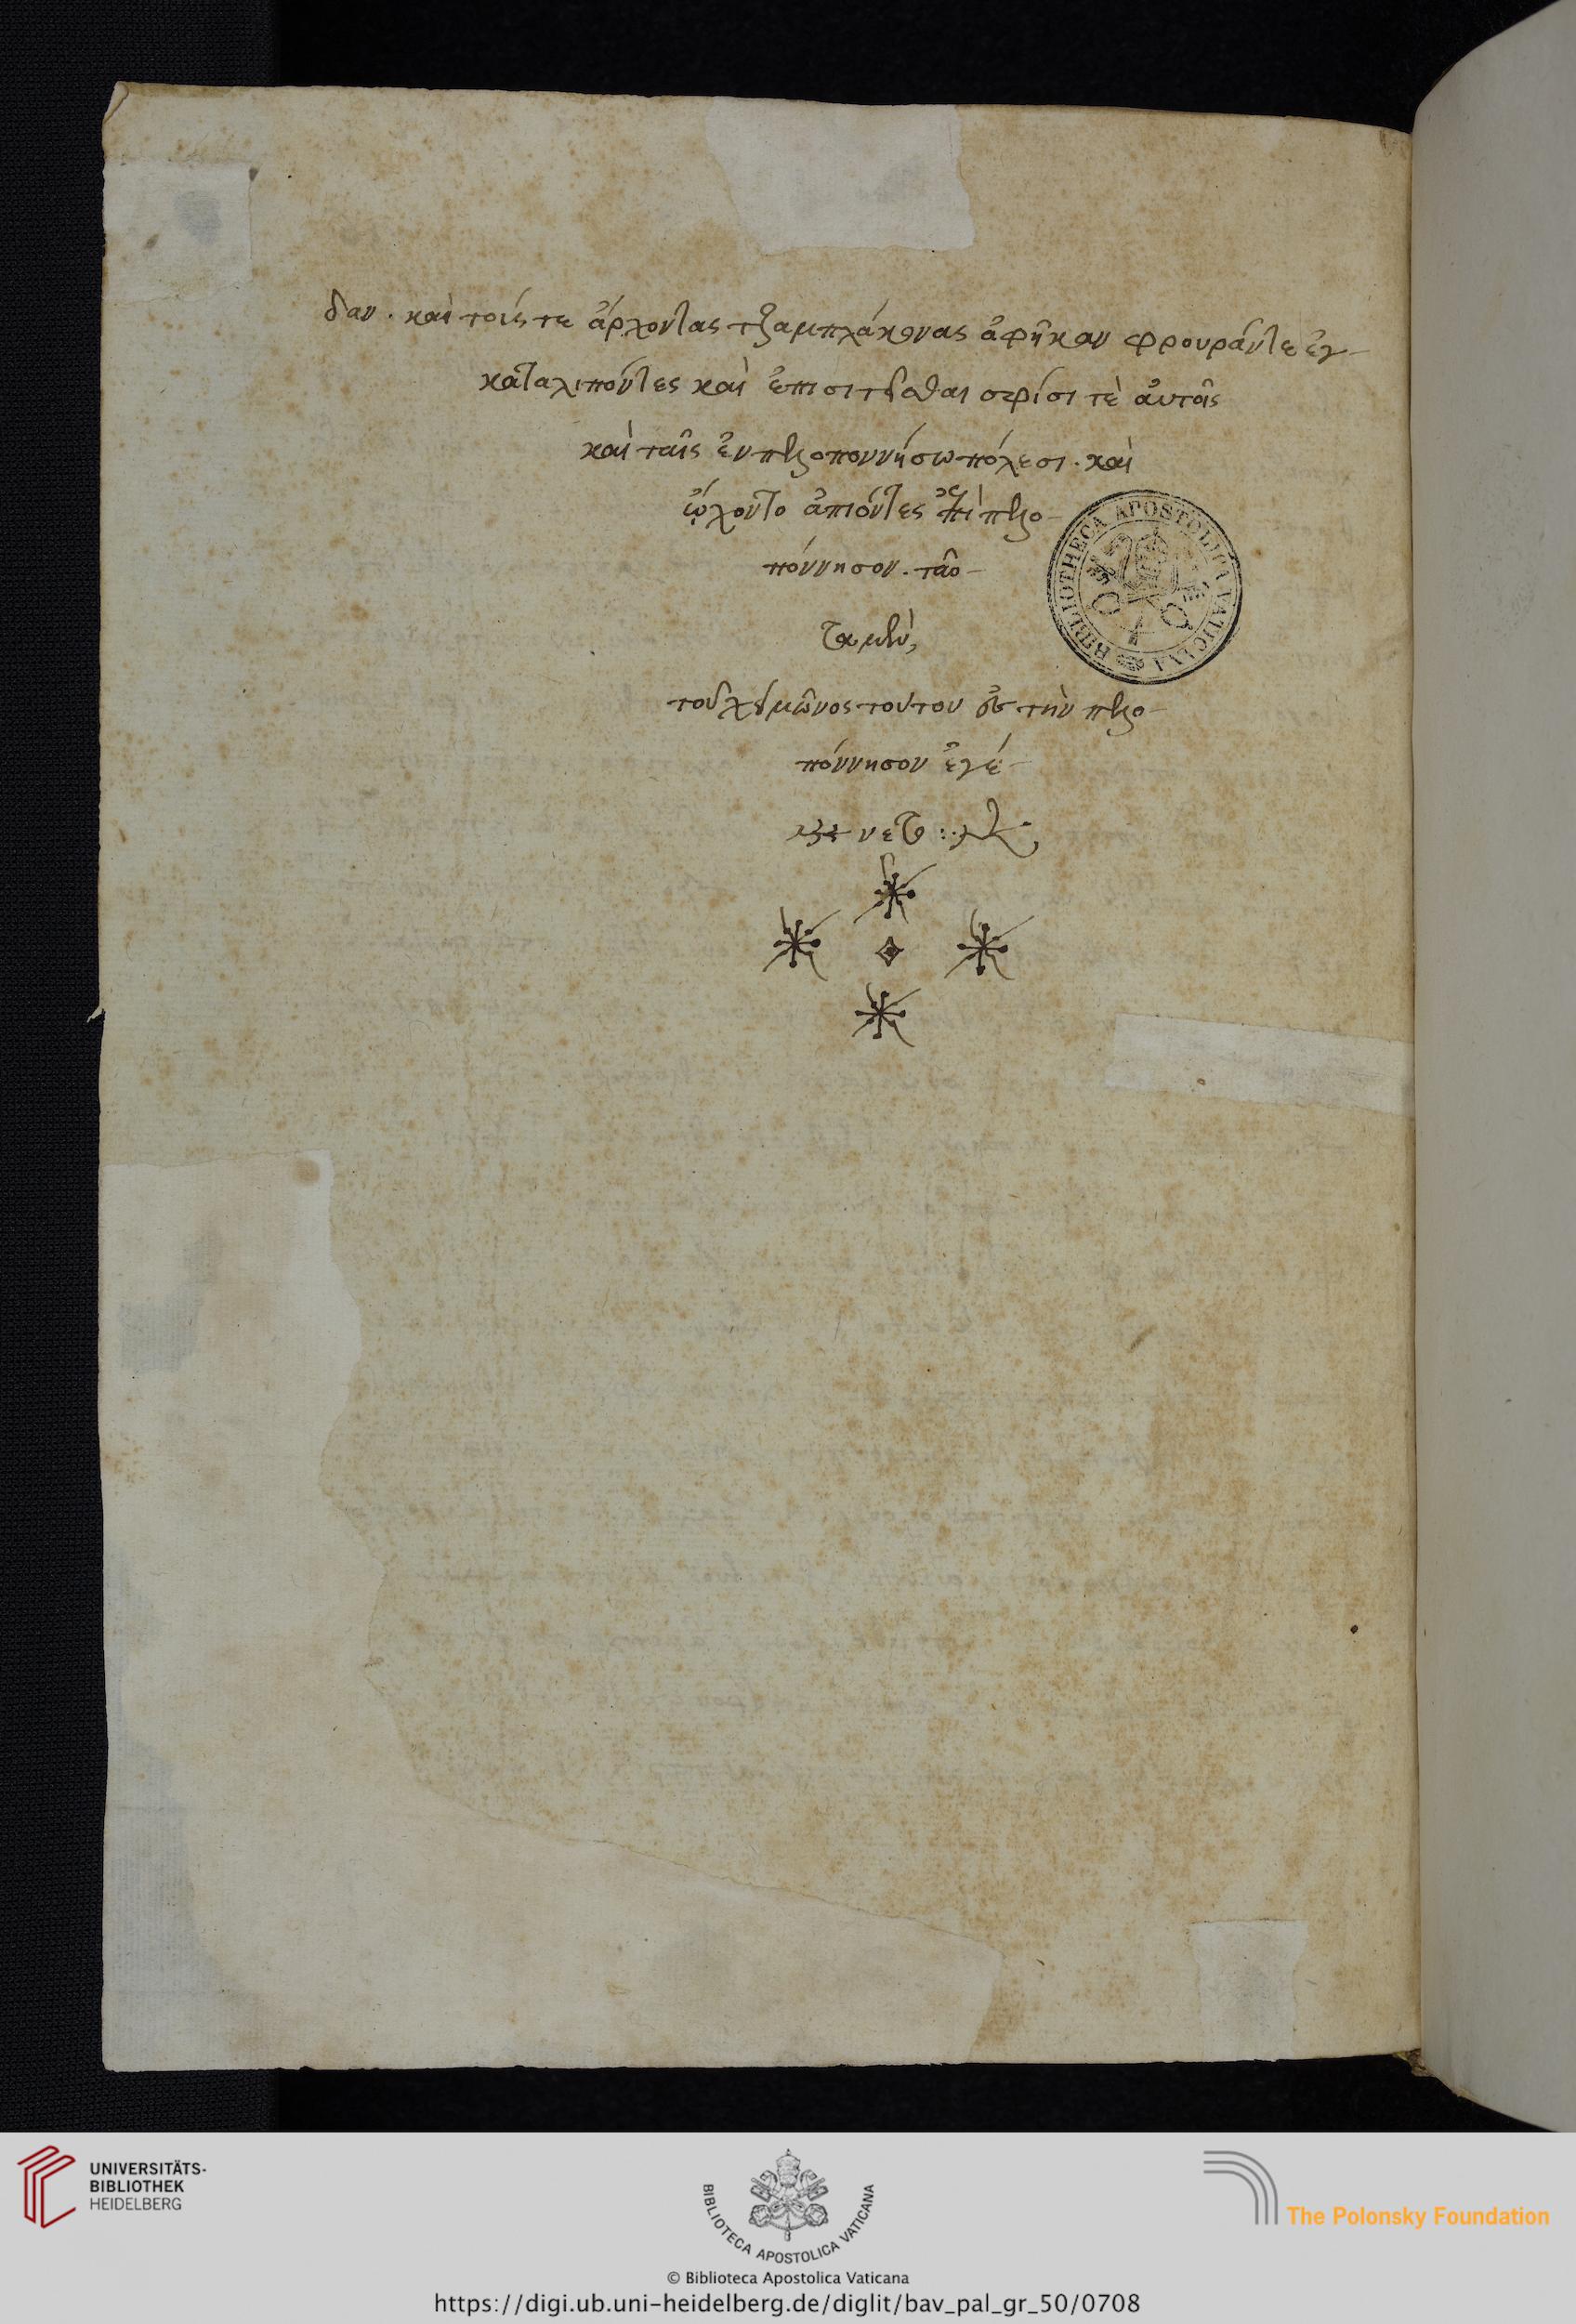 δαν. καὶ τούς τε ἄρχοντας τζαμπλάκωνας ἀφῆκαν φρουράν τε ἐγ-
καταλιπόντες καὶ ἐπισιτεῖσθαι σφίσι τὲ αὐτοῖς
καὶ ταῖς ἐν πελοποννήσω πόλεσι. καὶ
ᾤχοντο ἀπιόντες ἐπὶ πελο-
πόννησον. ταῦ-
τα μὲν,
τοῦ χειμῶνος τούτου ἐς τὴν πελο-
πόννησον ἐγέ-
νετο
BIBLIOTHECA APOSTOLICA VATICANA
UNIVERSITÄTS-
BIBLIOTHEK
HEIDELBERG
BIBLIOTECA APOSTOLICA VATICANA
The Polonsky Foundation
© Biblioteca Apostolica Vaticana
https://digi.ub.uni-heidelberg.de/diglit/bav_pal_gr_50/0708